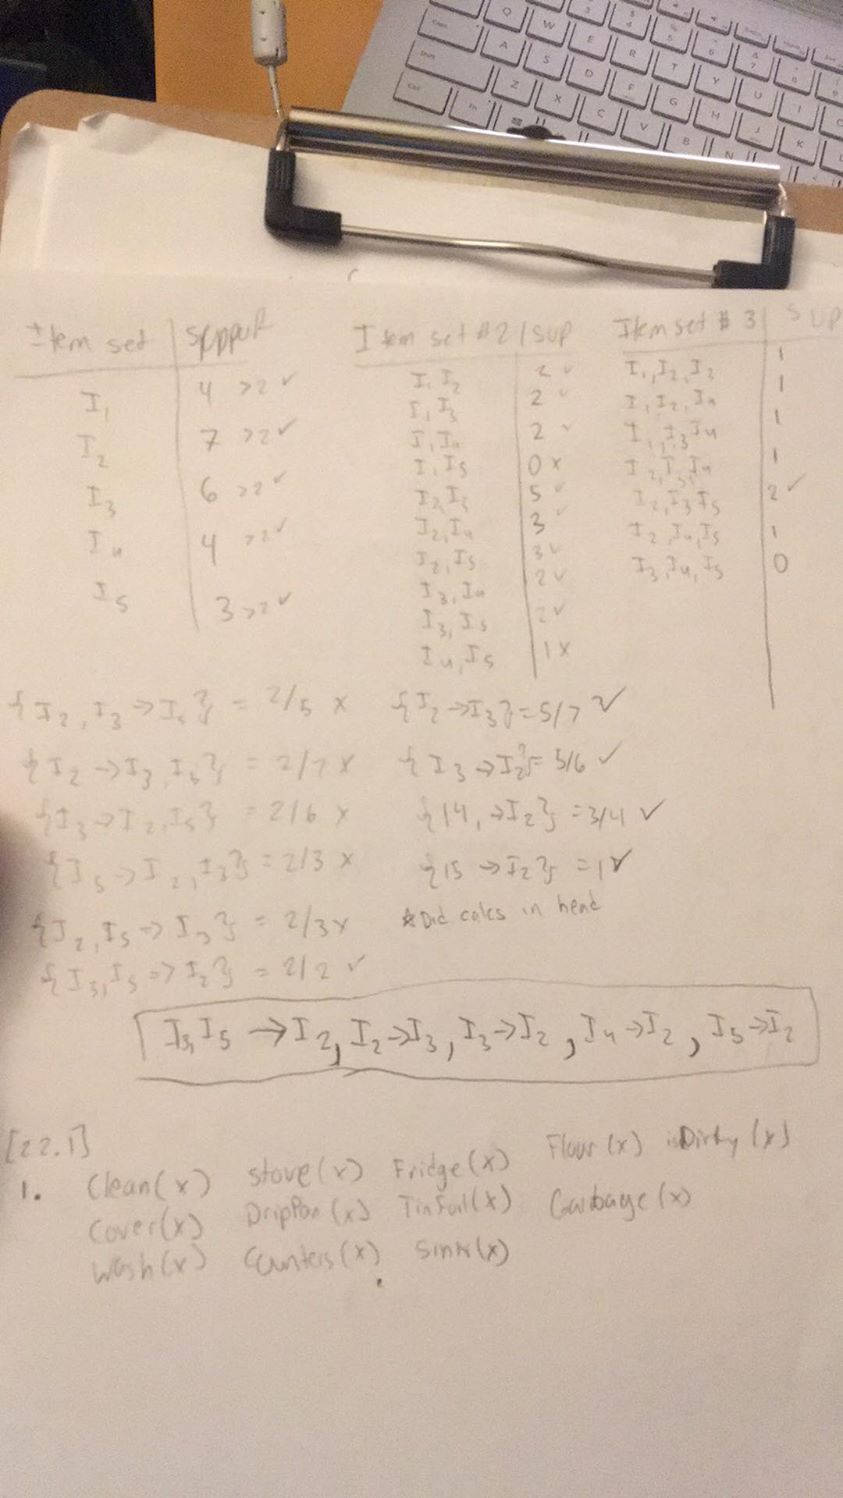 Item set | support
I1 4 >2 ✓
I2 7 >2 ✓
I3 6 >2 ✓
I4 4 >2 ✓
I5 3 >2 ✓
Item set #2 | sup
I1 I2 2 ✓
I1 I3 2 ✓
I1 I4 2 ✓
I1 I5 0 x
I2 I3 5 ✓
I2, I4 3 ✓
I2, I5 3 ✓
I3, I4 2 ✓
I3, I5 2 ✓
I4, I5 1 x
Item set # 3 | SUP
I1, I2, I2 1
I1, I2, I4 1
I1, I3 I4 1
I2, I3, I4 1
I2, I3 I5 2 ✓
I2, I4, I5 1
I3, I4, I5 0
{I2, I3 → I5} = 2/5 x
{I2 → I3, I5} = 2/7 x
{I3 → I2, I5} = 2/6 x
{I5 → I2, I3} = 2/3 x
{I2, I5 → I3} = 2/3 x
{I3, I5 → I2} = 2/2 ✓
{I2 → I3} = 5/7 ✓
{I3 → I2} = 5/6 ✓
{I4, → I2} = 3/4 ✓
{I5 → I2} = 1 ✓
*Did calcs in head
I3, I5 → I2, I2 → I3, I3 → I2, I4 → I2, I5 → I2
[22.1]
1. Clean(x) stove(x) Fridge(x) Floor(x) isDirty(x)
Cover(x) DripPan(x) TinFoil(x) Garbage(x)
Wash(x) Counters(x) Sink(x)